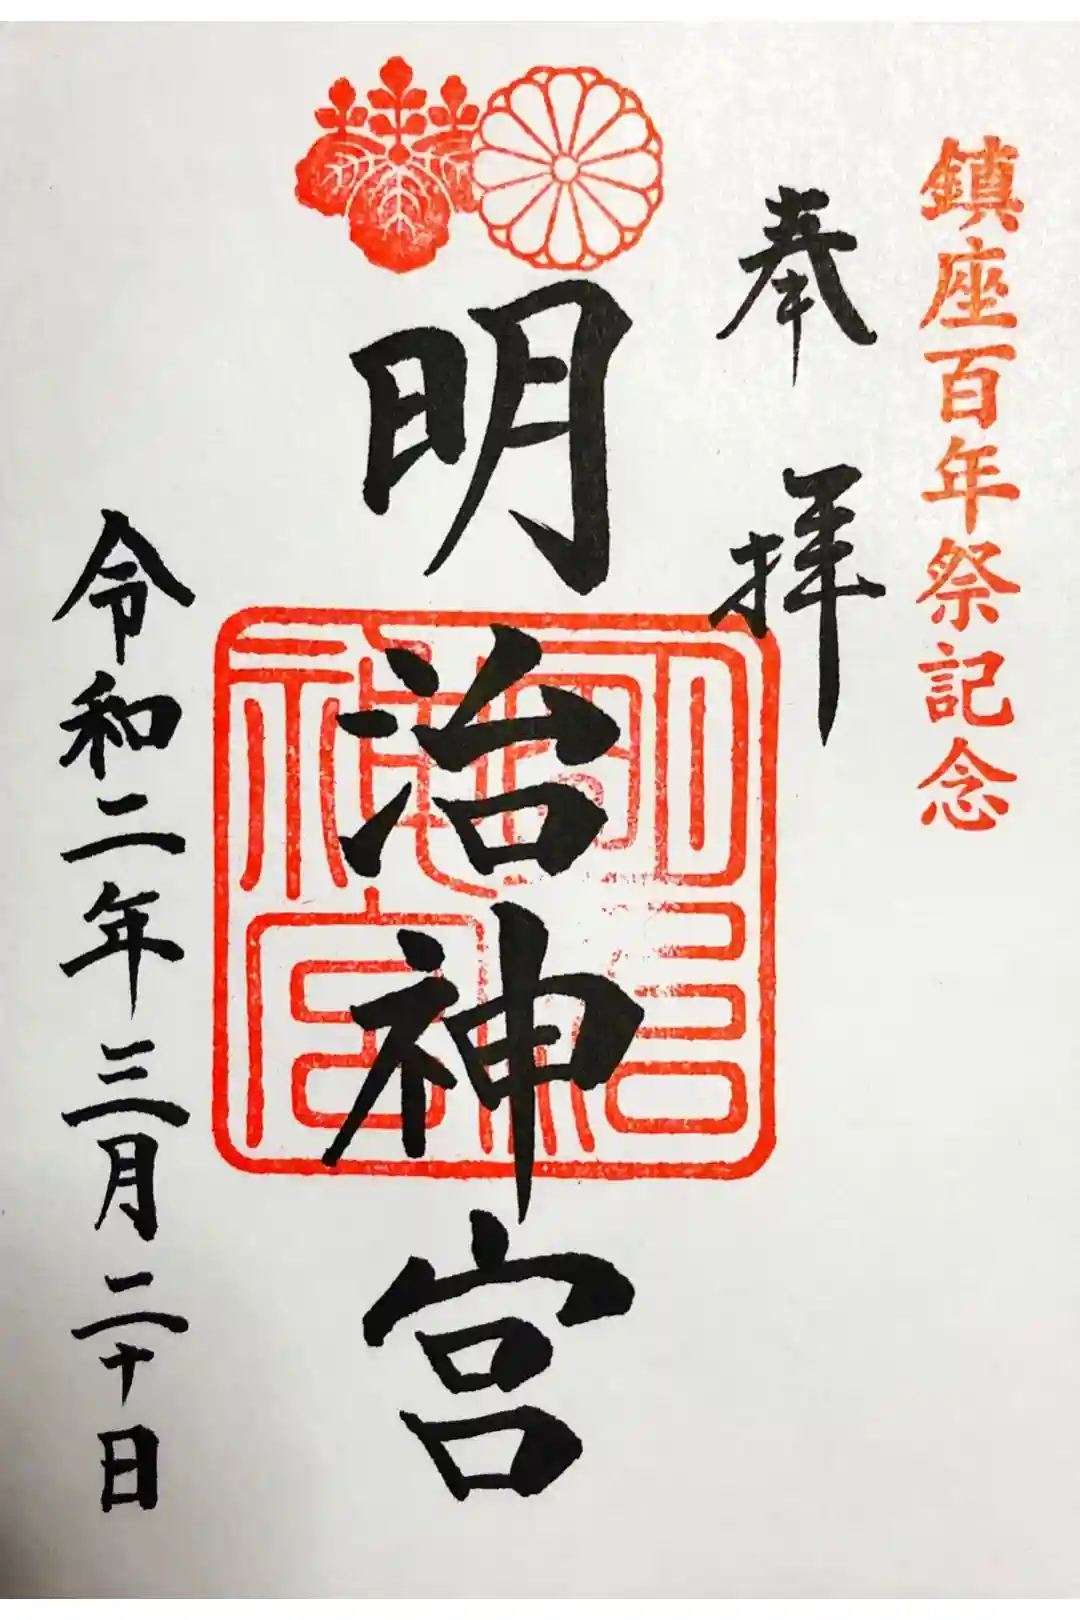 鎮座百年祭記念
奉拝
明治神宮
令和二年三月二十日
明治神宮